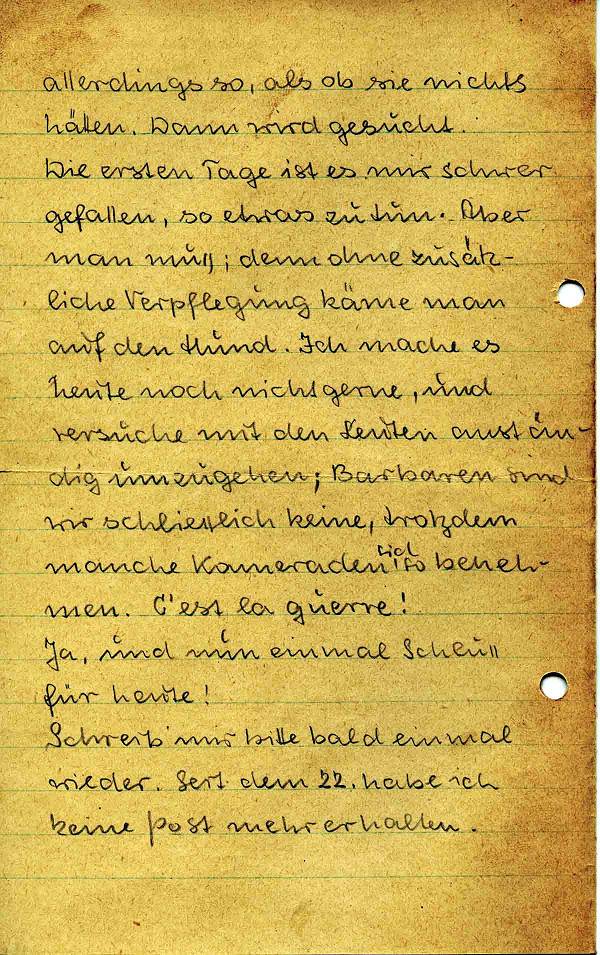 allerdings so, als ob sie nichts
hätten. Dann wird gesucht.
Die ersten Tage ist es mir schwer
gefallen, so etwas zu tun. Aber
man muß; denn ohne zusätz-
liche Verpflegung käme man
auf den Hund. Ich mache es
heute noch nicht gerne, und
versuche mit den Leuten anstän-
dig umzugehen; Barbaren sind
wir schließlich keine, trotzdem
manche Kameraden sich so beneh-
men. C'est la guerre!
Ja, und nun einmal Schluß
für heute!
Schreib mir bitte bald einmal
wieder. Seit dem 22. habe ich
keine Post mehr erhalten.